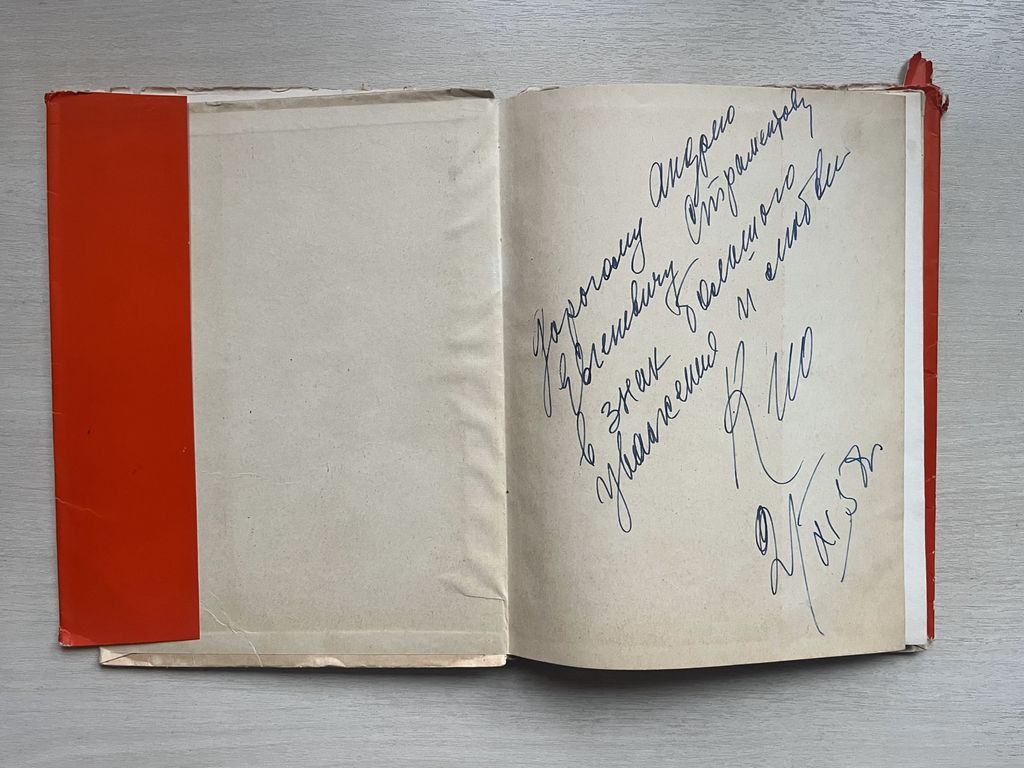 Дорогому Андрею
Евгеневичу Страментову
в знак большого
уважения и любви
Кио